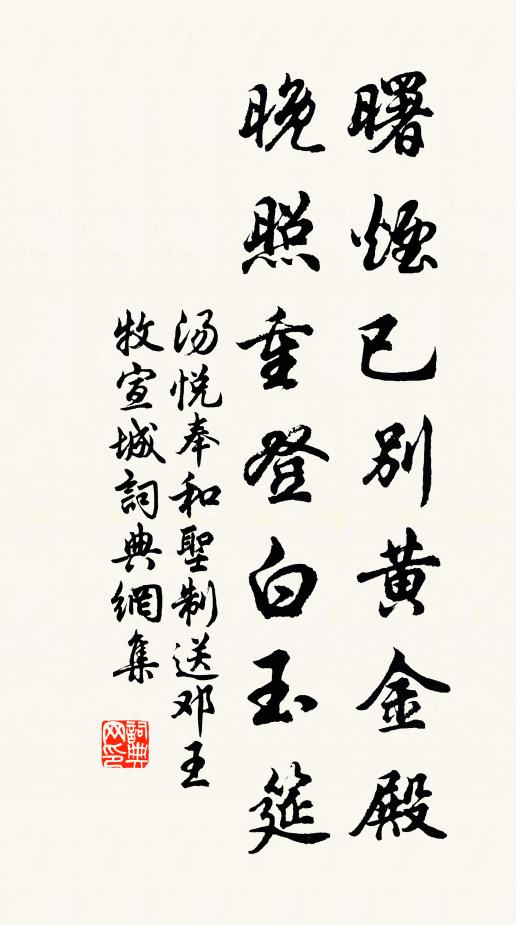 曙煙已別黄金殿
晚照重登白玉筵
汤悦奉和聖制送邓王
牧宣城詞典網集
詞典
网印